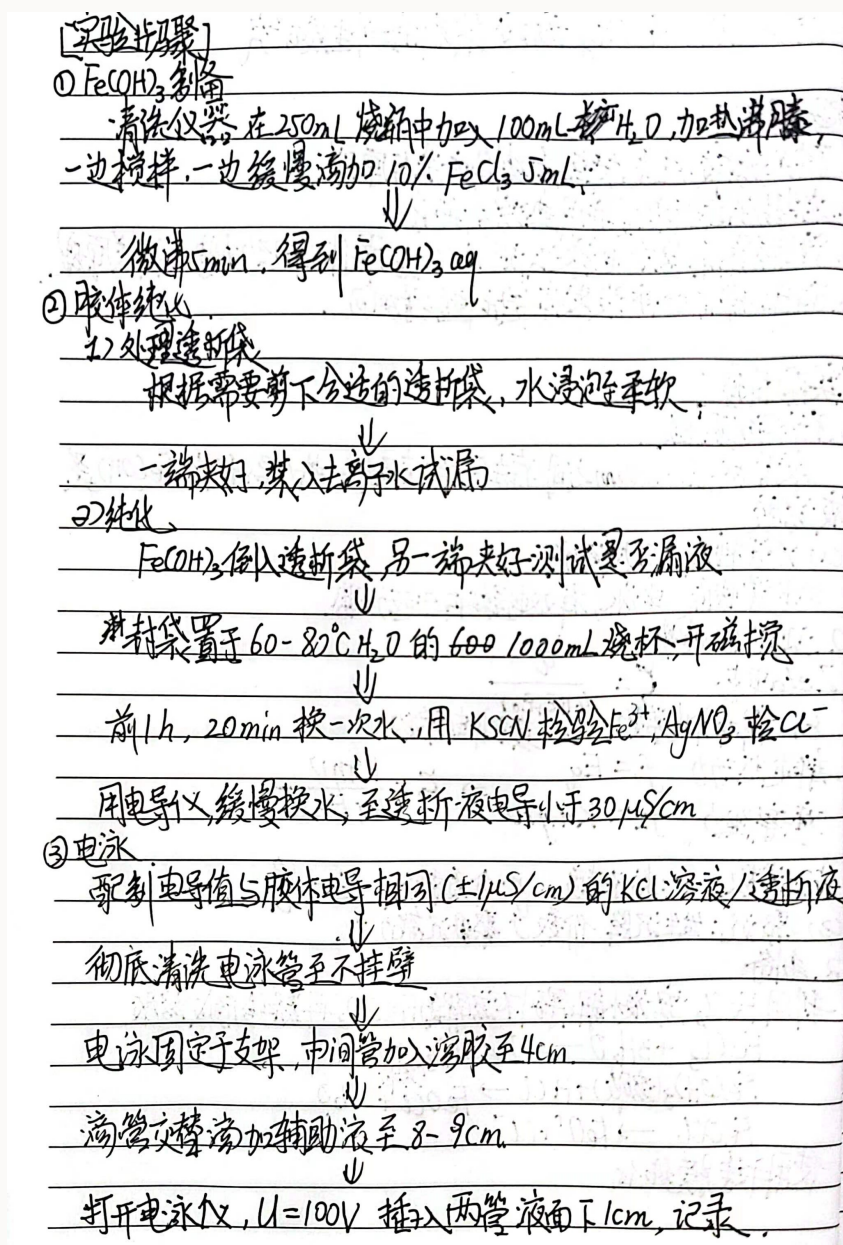 [实验步骤]
① Fe(OH)₃制备
清洗仪器,在250mL烧瓶中加入100mL H₂O,加热沸腾,
一边搅拌,一边缓慢滴加10% FeCl₃ 5mL.
⇓
微沸5min,得到Fe(OH)₃ aq
② 胶体纯化.
1)处理透析袋
根据需要剪下合适的透析袋,水浸泡至柔软;
⇓
一端夹好,装入去离子水试漏
2)纯化
Fe(OH)₃倒入透析袋,另一端夹好测试是否漏液
⇓
封袋置于60-80℃ H₂O的 1000mL烧杯,开磁搅
⇓
前1h, 20min换一次水,用KSCN检验Fe³⁺, AgNO₃检Cl⁻
⇓
用电导仪,缓慢换水,至透析液电导小于30μS/cm
③ 电泳.
配制电导值与胶体电导相同(±1μS/cm)的KCl溶液/透析液
⇓
彻底清洗电泳管至不挂壁
⇓
电泳固定于支架,中间管加入溶胶至4cm.
⇓
滴管交替滴加辅助液至8-9cm.
⇓
打开电泳仪, U=100V 插入两管液面下1cm,记录.